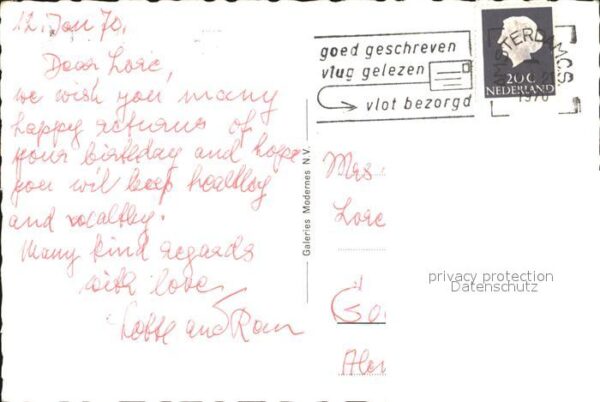 12. Jan 70.
Dear Lore,
we wish you many
happy returns of
your birthday and hope
you will keep healthy
and wealthy.
Many kind regards
with love,
Lotte and
goed geschreven
vlug gelezen
vlot bezorgd
AMSTERDAM C.S.
1970
20 C
NEDERLAND
Galeries Modernes N.V.
Mrs
Lore
privacy protection
Datenschutz